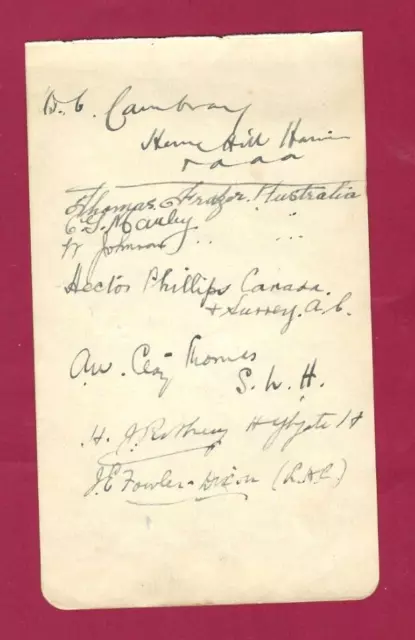 Cambray
Herne Hill Harriers
& A.A.A.
Thomas G Frazer. Australia
Johnson " "
Hector Phillips Canada
& Surrey. A.C.
Aw. Thomas
S. L. H.
H. J. Highgate H
J. E Fowler-Dixon (L.A.C.)